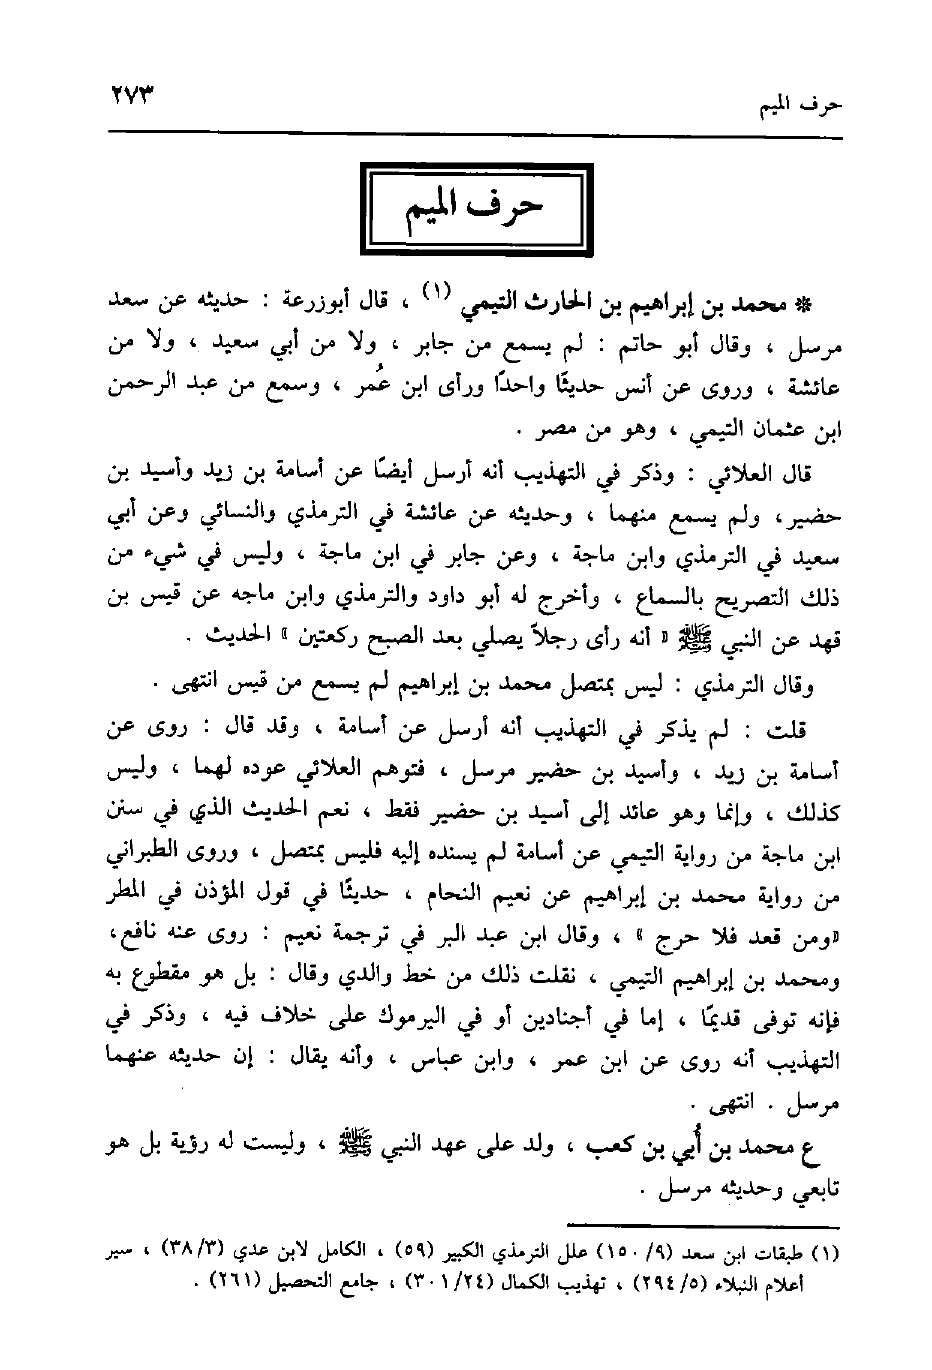 ٢٧٣
حرف الميم
حرف الميم
❋ محمد بن إبراهيم بن الحارث التيمي (١) ، قال أبوزرعة : حديثه عن سعد
مرسل ، وقال أبو حاتم : لم يسمع من جابر ، ولا من أبي سعيد ، ولا من
عائشة ، وروى عن أنس حديثًا واحدًا ورأى ابن عُمر ، وسمع من عبد الرحمن
ابن عثمان التيمي ، وهو من مصر .
قال العلائي : وذكر في التهذيب أنه أرسل أيضًا عن أسامة بن زيد وأسيد بن
حضير، ولم يسمع منهما ، وحديثه عن عائشة في الترمذي والنسائي وعن أبي
سعيد في الترمذي وابن ماجة ، وعن جابر في ابن ماجة ، وليس في شيء من
ذلك التصريح بالسماع ، وأخرج له أبو داود والترمذي وابن ماجه عن قيس بن
قهد عن النبي ﷺ « أنه رأى رجلاً يصلي بعد الصبح ركعتين » الحديث .
وقال الترمذي : ليس بمتصل محمد بن إبراهيم لم يسمع من قيس انتهى .
قلت : لم يذكر في التهذيب أنه أرسل عن أسامة ، وقد قال : روى عن
أسامة بن زيد ، وأسيد بن حضير مرسل ، فتوهم العلائي عوده لهما ، وليس
كذلك ، وإنما وهو عائد إلى أسيد بن حضير فقط ، نعم الحديث الذي في سنن
ابن ماجة من رواية التيمي عن أسامة لم يسنده إليه فليس بمتصل ، وروى الطبراني
من رواية محمد بن إبراهيم عن نعيم النحام ، حديثًا في قول المؤذن في المطر
«ومن قعد فلا حرج » ، وقال ابن عبد البر في ترجمة نعيم : روى عنه نافع،
ومحمد بن إبراهيم التيمي ، نقلت ذلك من خط والدي وقال : بل هو مقطوع به
فإنه توفى قديمًا ، إما في أجنادين أو في اليرموك على خلاف فيه ، وذكر في
التهذيب أنه روى عن ابن عمر ، وابن عباس ، وأنه يقال : إن حديثه عنهما
مرسل . انتهى .
ع محمد بن أُبي بن كعب ، ولد على عهد النبي ﷺ ، وليست له رؤية بل هو
تابعي وحديثه مرسل .
(١) طبقات ابن سعد (٩/ ١٥٠) علل الترمذي الكبير (٥٩) ، الكامل لابن عدي (٣٨/٣) ، سير
أعلام النبلاء (٥/ ٢٩٤) ، تهذيب الكمال (٣٠١/٢٤) ، جامع التحصيل (٢٦١) .